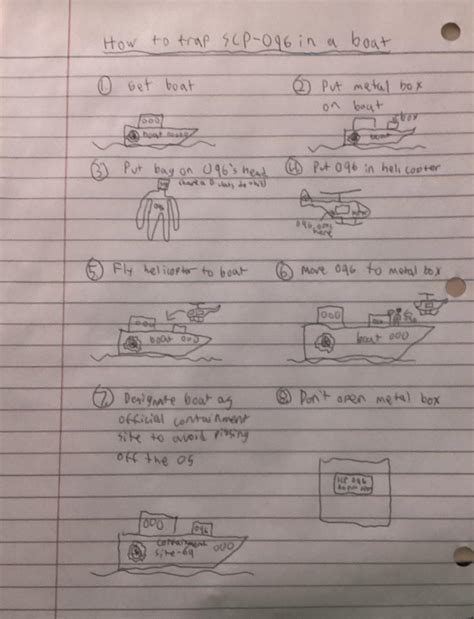 How to trap SCP-096 in a boat
① Get boat
② Put metal box
on boat
box
boat
boat
③ Put bag on 096's head
096
④ Put 096 in helicopter
096 goes
here
⑤ Fly helicopter to boat
⑥ Move 096 to metal box
boat
boat
⑦ Designate boat as
official containment
site to avoid pissing
off the O5
⑧ Don't open metal box
SCP 096
096
containment
site-69